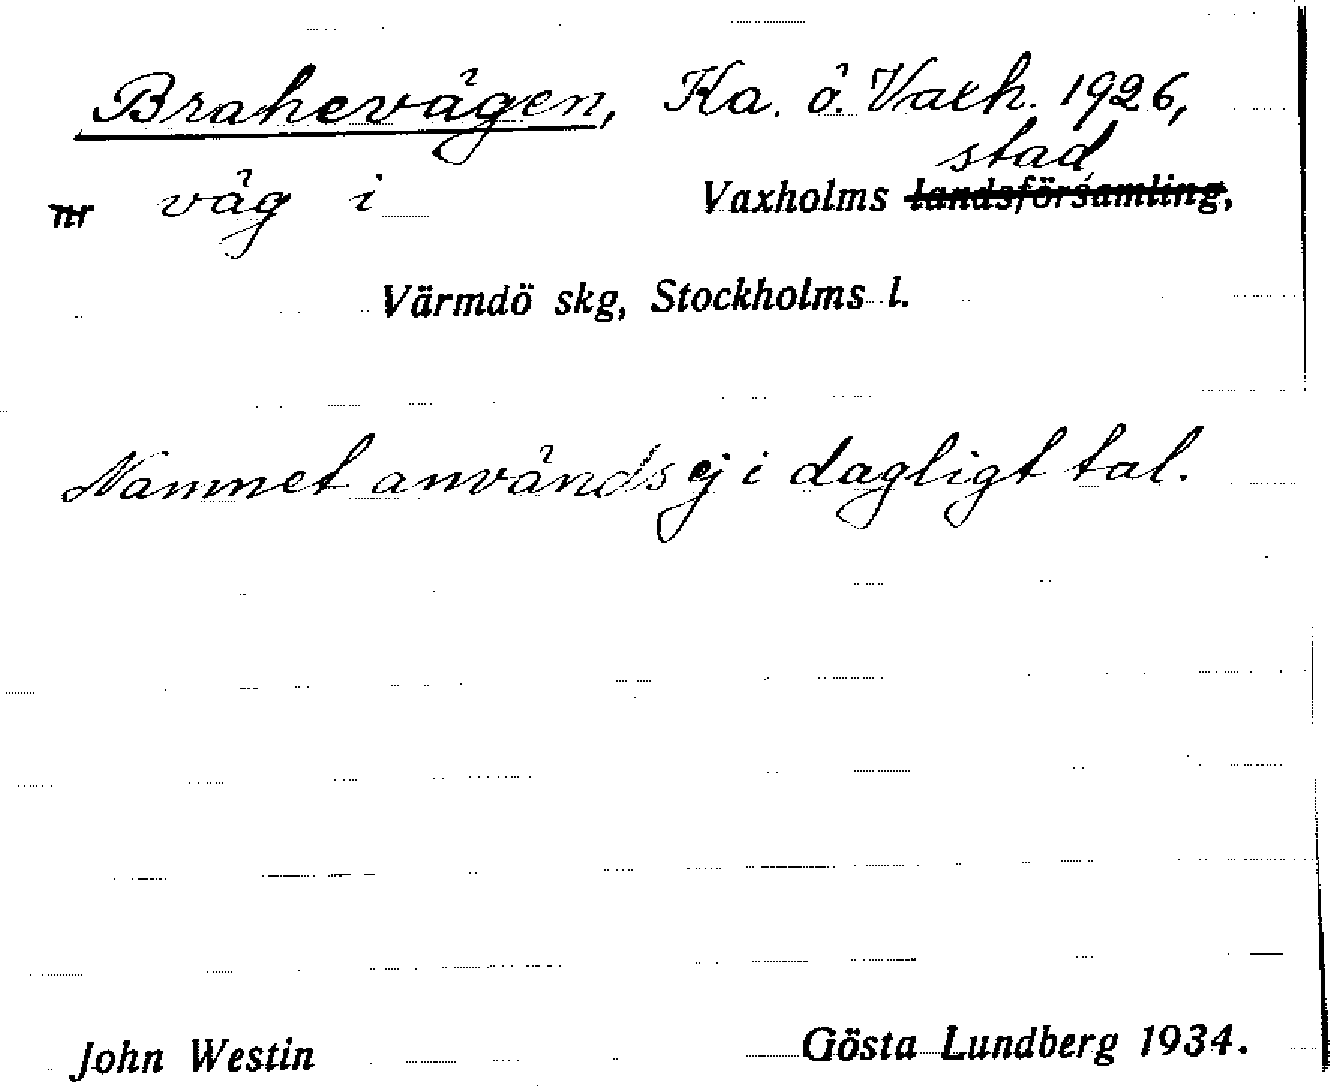 Brahevägen, Ka. ö. Vaxh. 1926,
stad
nr väg i Vaxholms landsförsamling,
Värmdö skg, Stockholms l.
Namnet används ej i dagligt tal.
John Westin Gösta Lundberg 1934.